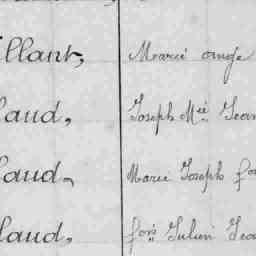 illant, Marie ange
laud, Joseph M.ie Jean
laud, Marie Joseph fo
laud, fois Julien Jea